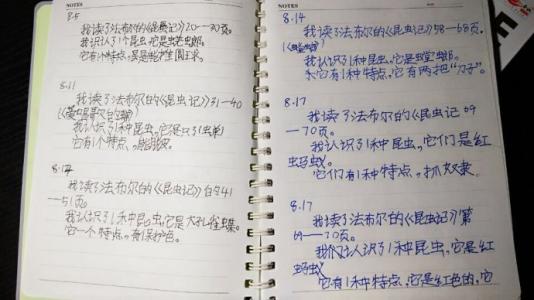 NOTES
8.5
我读了法布尔的《昆虫记》20—30页。
我认识了1个昆虫,它是
它有1个特点,
8.11
我读了法布尔的《昆虫记》31—40
我认识了1种昆虫,它是
它有1个特点,
8.12
我读了法布尔的《昆虫记》自41
—51页。
我认识了1种昆虫,它是大孔雀蝶。
它一个特点,有保护色。
NOTES
8.14
我读了法布尔的《昆虫记》58—68页。
我认识了1种昆虫,它是螳螂。
它有1种特点,它有两把“刀子”。
8.17
我读了法布尔的《昆虫记 69
—70页。
我认识了1种昆虫,它们是红
蚂蚁。
它们有1种特点,抓奴隶。
8.17
我读了法布尔的《昆虫记》第
69—70页。
我们认识了1种昆虫,它是红
蚂蚁
它有1种特点,它是红色的,它